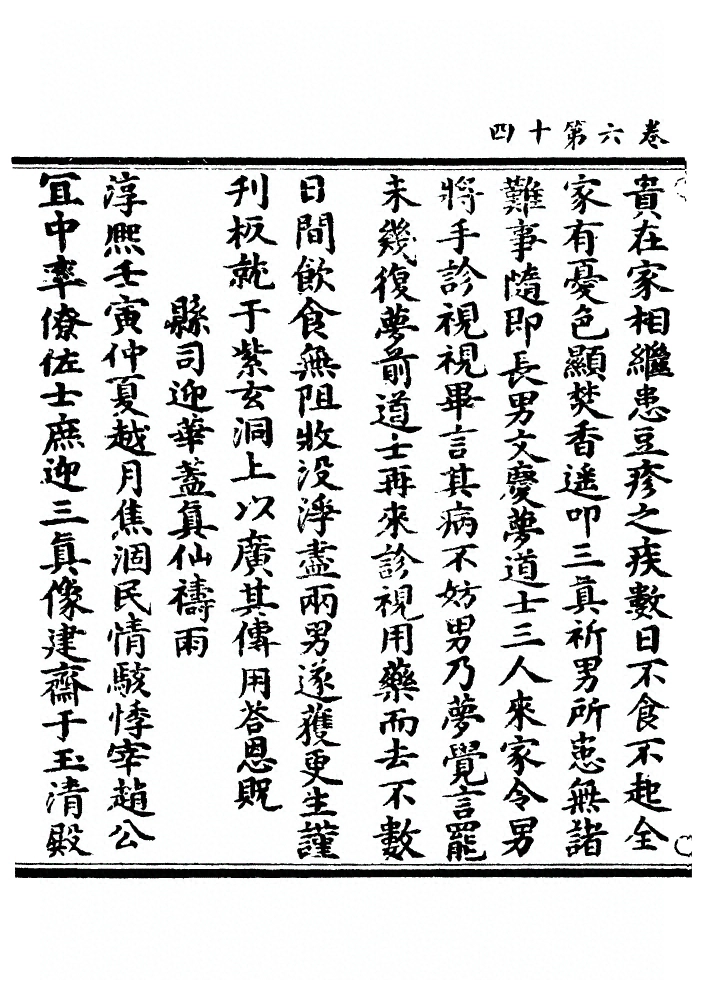 卷六第十四
貴在家相繼患豆疹之疾數日不食不起全
家有憂色顯焚香遙叩三眞祈男所患無諸
難事隨即長男文慶夢道士三人來家令男
將手診視視畢言其病不妨男乃夢覺言罷
未幾復夢前道士再來診視用藥而去不數
日間飲食無阻收没淨盡兩男遂獲更生謹
刋板就于紫玄洞上以廣其傳用荅恩貺
縣司迎華蓋眞仙禱雨
淳熈壬寅仲夏越月焦涸民情駭悸宰趙公
冝中率僚佐士庶迎三眞像建齋于玉清殿